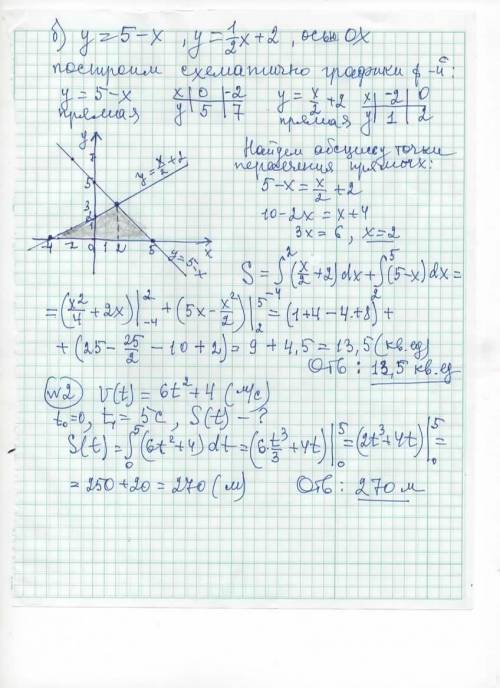 б) y = 5 - x , y = 1/2 x + 2 , осью OX
построим схематично графики ф-й:
y = 5 - x
прямая
x | 0 | -2
y | 5 | 7
y = x/2 + 2
прямая
x | -2 | 0
y | 1 | 2
y
7
5
3
2
1
-4 -2 0 1 2 5 x
y = x/2 + 2
y = 5 - x
Найдем абсциссу точки
пересечения прямых:
5 - x = x/2 + 2
10 - 2x = x + 4
3x = 6 , x = 2
S = ∫₋₄² (x/2 + 2) dx + ∫₂⁵ (5 - x) dx =
= (x²/4 + 2x) |₋₄² + (5x - x²/2) |₂⁵ = (1 + 4 - 4 + 8) +
+ (25 - 25/2 - 10 + 2) = 9 + 4,5 = 13,5 (кв.ед)
Отв : 13,5 кв.ед
№2 v(t) = 6t² + 4 (м/с)
t₀ = 0, t₁ = 5c , S(t) - ?
S(t) = ∫₀⁵ (6t² + 4) dt = (6·t³/3 + 4t) |₀⁵ = (2t³ + 4t) |₀⁵ =
= 250 + 20 = 270 (м) Отв : 270 м